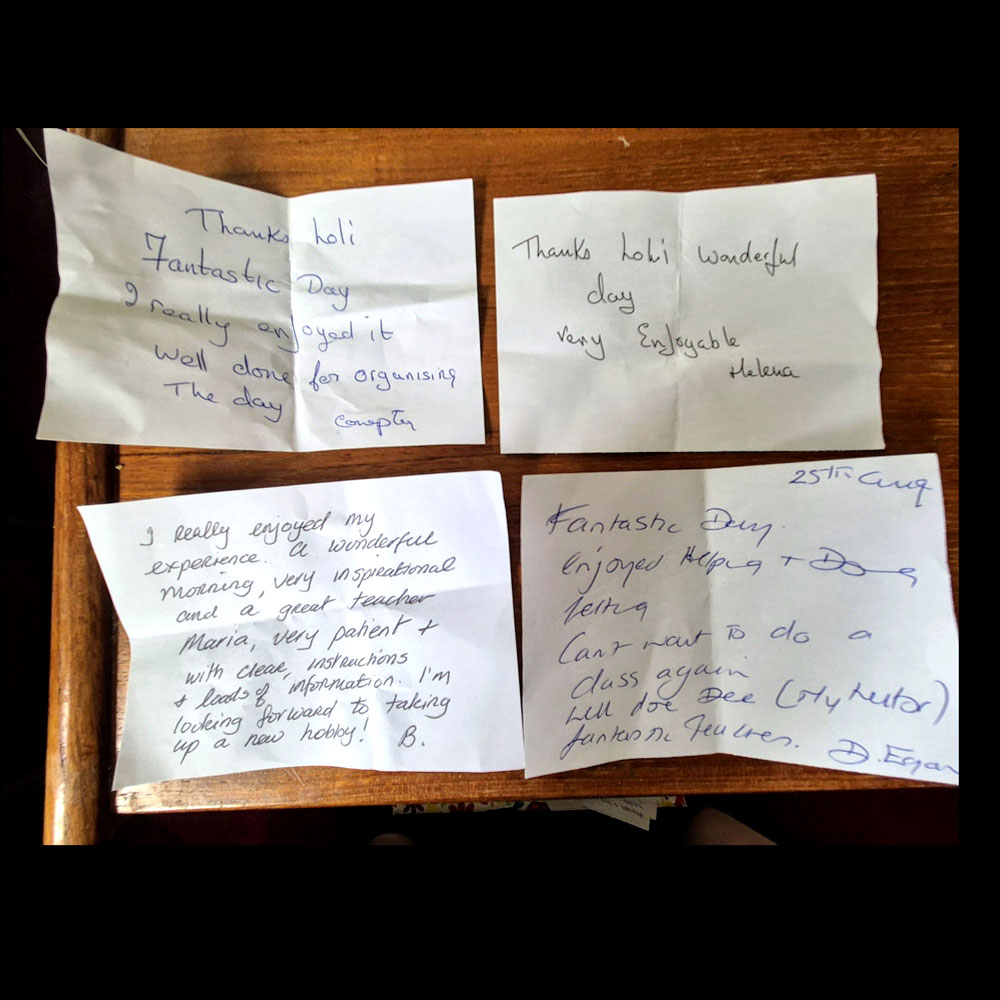 Thanks Loli
Fantastic Day
I really enjoyed it
Well done for organising
The day
Thanks Lohi wonderful
day
very Enjoyable
Helena
I really enjoyed my
experience. A wonderful
morning, very inspirational
and a great teacher
Maria, very patient +
with clear, instructions
+ loads of information. I'm
looking forward to taking
up a new hobby! B.
25th Aug
Fantastic Day.
Enjoyed Helping + Doing
felting
Can't wait to do a
class again
well done Dee (My tutor)
fantastic Teacher.
D. Egan